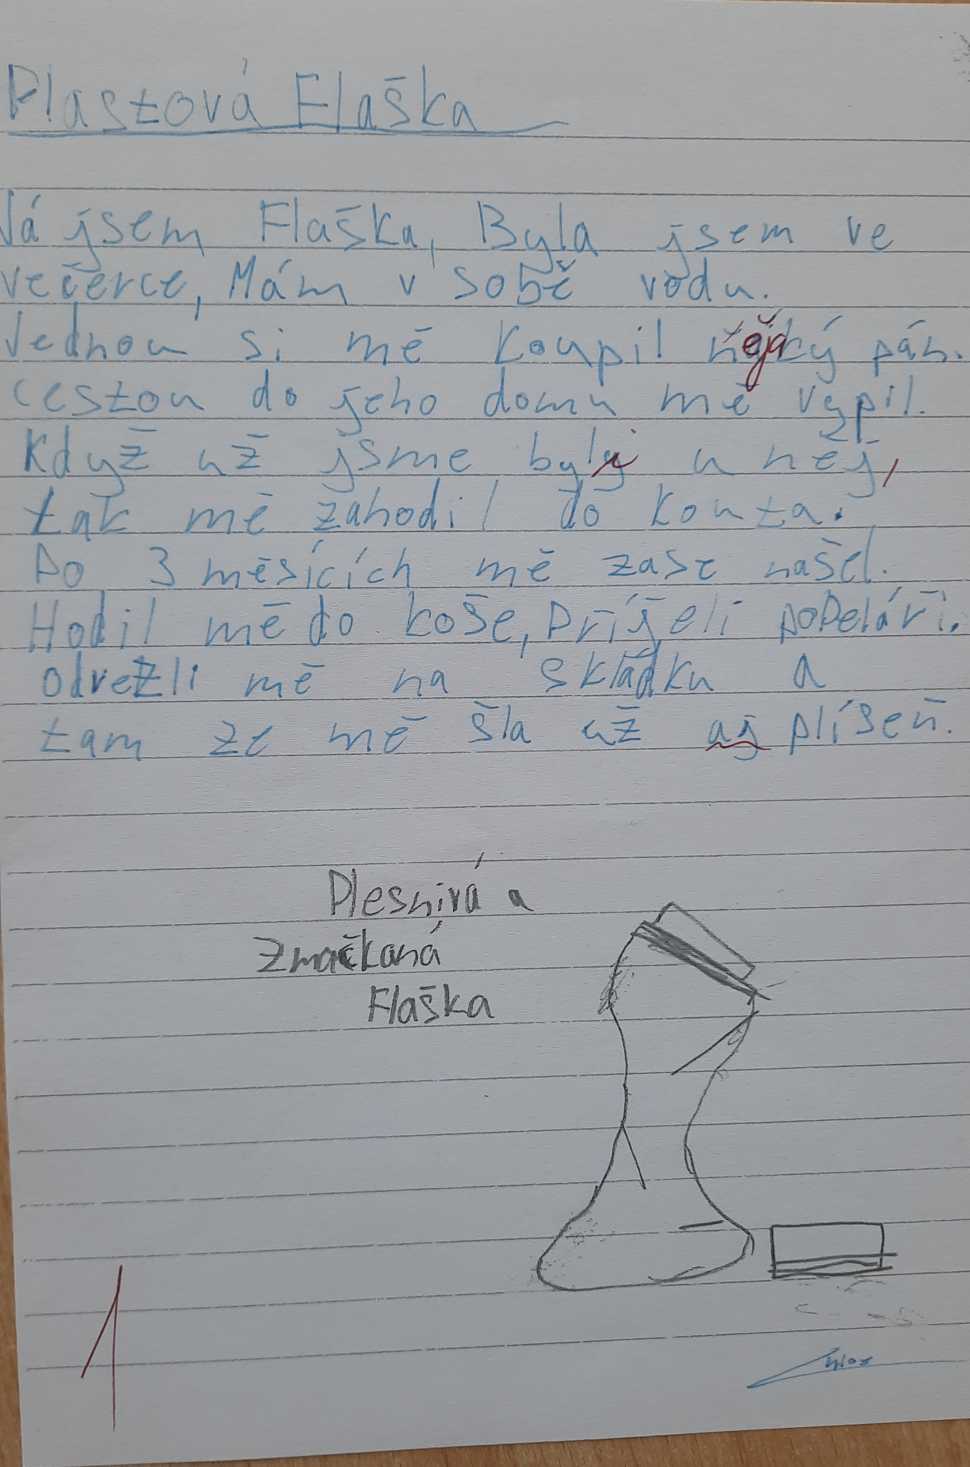 Plastová Flaška
Já jsem Flaška, Byla jsem ve
večerce, Mám v sobě vodu.
Jednou si mě koupil nějaký pán.
cestou do jeho domu mě vypil.
Když už jsme byly u něj,
tak mě zahodil do kouta.
Po 3 měsících mě zase našel.
Hodil mě do koše, Príjeli popeláři.
odvezli mě na skládku a
tam ze mě šla už aj plíseň.
Plesnivá a
Zmačkaná
Flaška
1